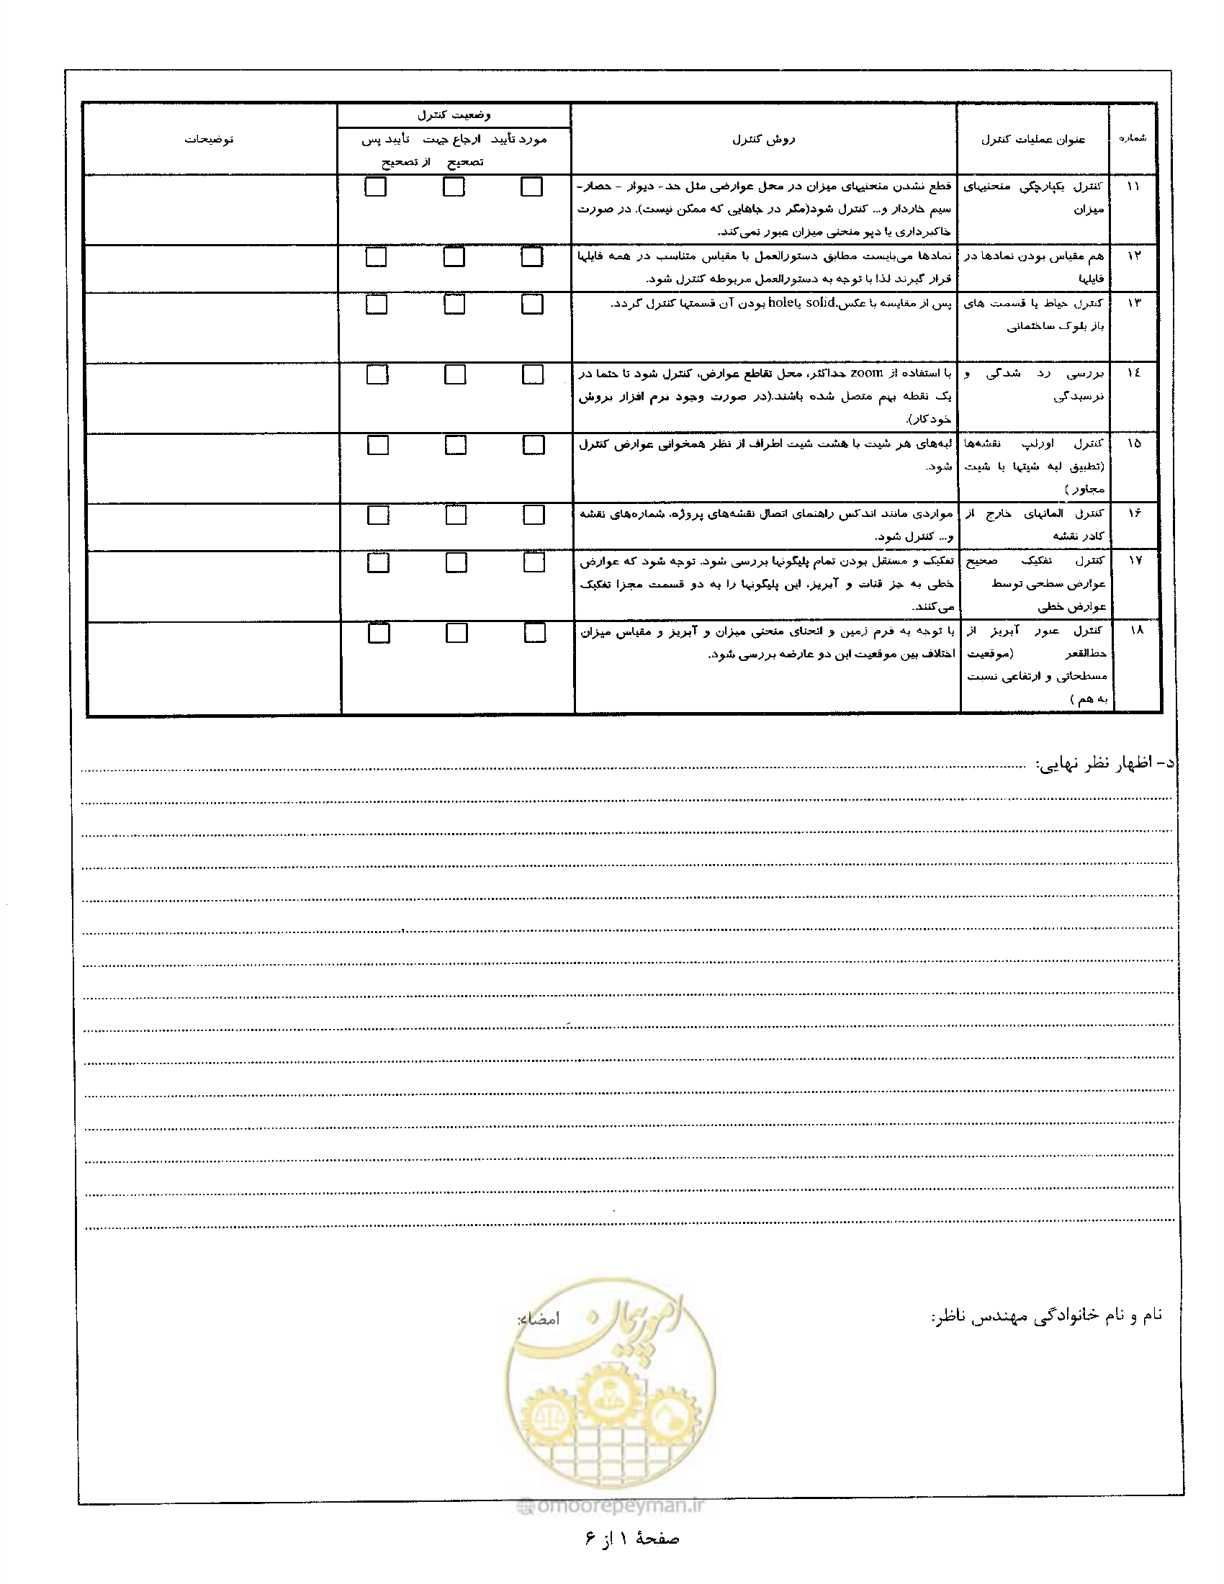 شماره
عنوان عملیات کنترل
روش کنترل
وضعیت کنترل
مورد تأیید
ارجاع جهت
تصحیح
تأیید پس
از تصحیح
توضیحات
۱۱
کنترل یکپارچگی منحنیهای
میزان
قطع نشدن منحنیهای میزان در محل عوارضی مثل جد - دیوار - حصار-
سیم خاردار و... کنترل شود(مگر در جاهایی که ممکن نیست). در صورت
خاکبرداری یا دپو منحنی میزان عبور نمی‌کند.
۱۲
هم مقیاس بودن نمادها در
فایلها
نمادها می‌بایست مطابق دستورالعمل با مقیاس متناسب در همه فایلها
قرار گیرند لذا با توجه به دستورالعمل مربوطه کنترل شود.
۱۳
کنترل حیاط یا قسمت های
باز بلوک ساختمانی
پس از مقایسه با عکس، solid یا hole بودن آن قسمتها کنترل گردد.
۱۴
بررسی رد شدگی و
نرسیدگی
با استفاده از zoom حداکثر، محل تقاطع عوارض، کنترل شود تا حتما در
یک نقطه بهم متصل شده باشند.(در صورت وجود نرم افزار بروش
خودکار).
۱۵
کنترل اورلپ نقشه‌ها
(تطبیق لبه شیتها با شیت
مجاور )
لبه‌های هر شیت با هشت شیت اطراف از نظر همخوانی عوارض کنترل
شود.
۱۶
کنترل المانهای خارج از
کادر نقشه
مواردی مانند اندکس راهنمای اتصال نقشه‌های پروژه، شماره‌های نقشه
و... کنترل شود.
۱۷
کنترل تفکیک صحیح
عوارض سطحی توسط
عوارض خطی
تفکیک و مستقل بودن تمام پلیگونها بررسی شود. توجه شود که عوارض
خطی به جز قنات و آبریز، این پلیگونها را به دو قسمت مجزا تفکیک
می‌کنند.
۱۸
کنترل عبور آبریز از
خط‌القعر (موقعیت
مسطحاتی و ارتفاعی نسبت
به هم )
با توجه به فرم زمین و انحنای منحنی میزان و آبریز و مقیاس میزان
اختلاف بین موقعیت این دو عارضه بررسی شود.
د- اظهار نظر نهایی:
نام و نام خانوادگی مهندس ناظر:
امضاء:
امورپیمان
@omoorepeyman.ir
صفحهٔ ۱ از ۶